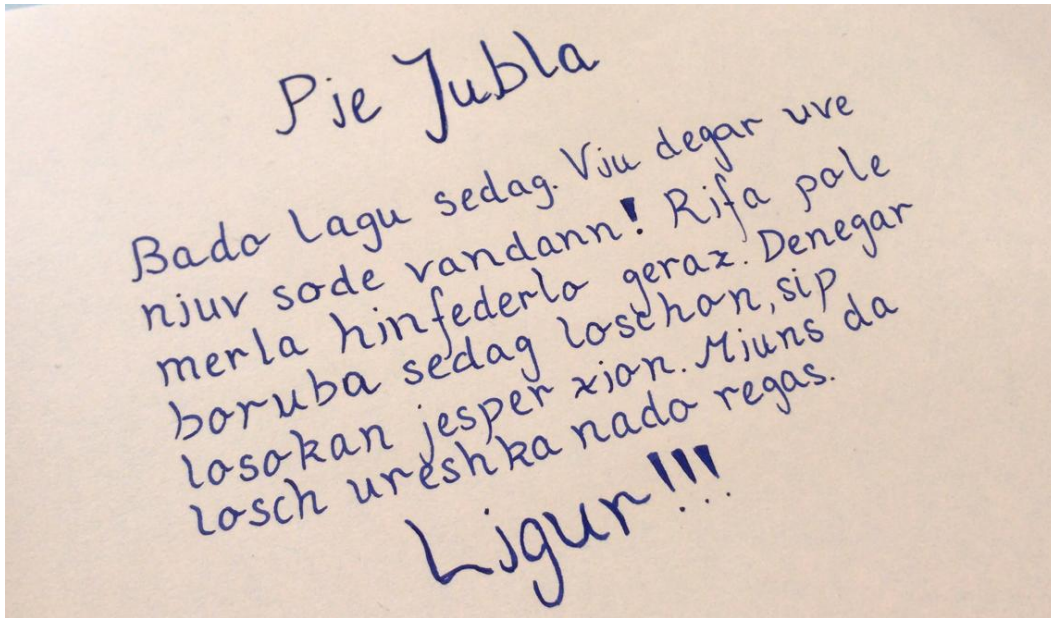 Pie Jubla
Bado lagu sedag. Viu degar uve
njuv sode vandann! Rifa pole
merla hinfederlo geraz. Denegar
boruba sedag loschon, sip
losokan jesper xion. Miuns da
losch ureshka nado regas.
Ligur!!!